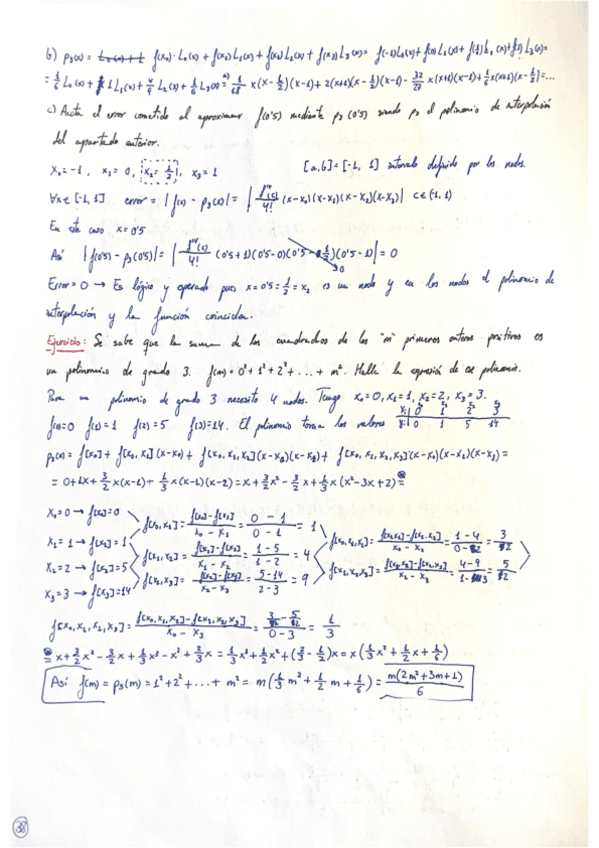 b) P₃(x) = f(x₀)·L₀(x) + f(x₁)L₁(x) + f(x₂)L₂(x) + f(x₃)L₃(x) = f(-1)L₀(x) + f(0)L₁(x) + f(½)L₂(x) + f(1)L₃(x) =
c) Acota el error cometido al aproximar f(0'5) mediante p₃(0'5) siendo p₃ el polinomio de interpolación
del apartado anterior.
x₀ = -1, x₁ = 0, x₂ = ½, x₃ = 1 [a,b] = [-1, 1] intervalo definido por los nodos.
∀x ∈ [-1, 1] error = |f(x) - p₃(x)| = |fᴵⱽ(c)/4! (x-x₀)(x-x₁)(x-x₂)(x-x₃)| c ∈ (-1, 1)
En este caso x = 0'5
Así |f(0'5) - p₃(0'5)| = |fᴵⱽ(c)/4! (0'5+1)(0'5-0)(0'5-½)(0'5-1)| = 0
Error = 0 → Es lógico y esperado pues x = 0'5 = ½ = x₂ es un nodo y en los nodos el polinomio de
interpolación y la función coinciden.
Ejercicio: Se sabe que la suma de los cuadrados de los "m" primeros enteros positivos es
un polinomio de grado 3. f(m) = 0² + 1² + 2² + ... + m². Halla la expresión de ese polinomio.
Para un polinomio de grado 3 necesito 4 nodos. Tengo x₀ = 0, x₁ = 1, x₂ = 2, x₃ = 3.
f(0) = 0 f(1) = 1 f(2) = 5 f(3) = 14. El polinomio toma los valores
xᵢ 0 1 2 3
yᵢ 0 1 5 14
p₃(x) = f[x₀] + f[x₀, x₁](x-x₀) + f[x₀, x₁, x₂](x-x₀)(x-x₁) + f[x₀, x₁, x₂, x₃](x-x₀)(x-x₁)(x-x₂) =
= 0 + 1·x + 3/2 x(x-1) + 1/3 x(x-1)(x-2) = x + 3/2 x² - 3/2 x + 1/3 x (x² - 3x + 2) =
x₀ = 0 → f[x₀] = 0
f[x₀, x₁] = (f[x₀] - f[x₁])/(x₀ - x₁) = (0 - 1)/(0 - 1) = 1
x₁ = 1 → f[x₁] = 1
f[x₀, x₁, x₂] = (f[x₀,x₁] - f[x₁, x₂])/(x₀ - x₂) = (1 - 4)/(0 - 2) = 3/2
f[x₁, x₂] = (f[x₁] - f[x₂])/(x₁ - x₂) = (1 - 5)/(1 - 2) = 4
x₂ = 2 → f[x₂] = 5
f[x₁, x₂, x₃] = (f[x₁,x₂] - f[x₂, x₃])/(x₁ - x₃) = (4 - 9)/(1 - 3) = 5/2
f[x₂, x₃] = (f[x₂] - f[x₃])/(x₂ - x₃) = (5 - 14)/(2 - 3) = 9
x₃ = 3 → f[x₃] = 14
f[x₀, x₁, x₂, x₃] = (f[x₀, x₁, x₂] - f[x₁, x₂, x₃])/(x₀ - x₃) = (3/2 - 5/2)/(0 - 3) = 1/3
= x + 3/2 x² - 3/2 x + 1/3 x³ - x² + 2/3 x = 1/3 x³ + 1/2 x² + (2/3 - 1/2)x = x(1/3 x² + 1/2 x + 1/6)
Así f(m) = p₃(m) = 1² + 2² + ... + m² = m(1/3 m² + 1/2 m + 1/6) = m(2m² + 3m + 1)/6